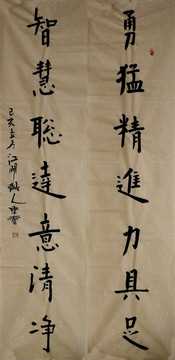 勇猛精進力具足
智慧聡達意清净
己亥立冬江湖散人